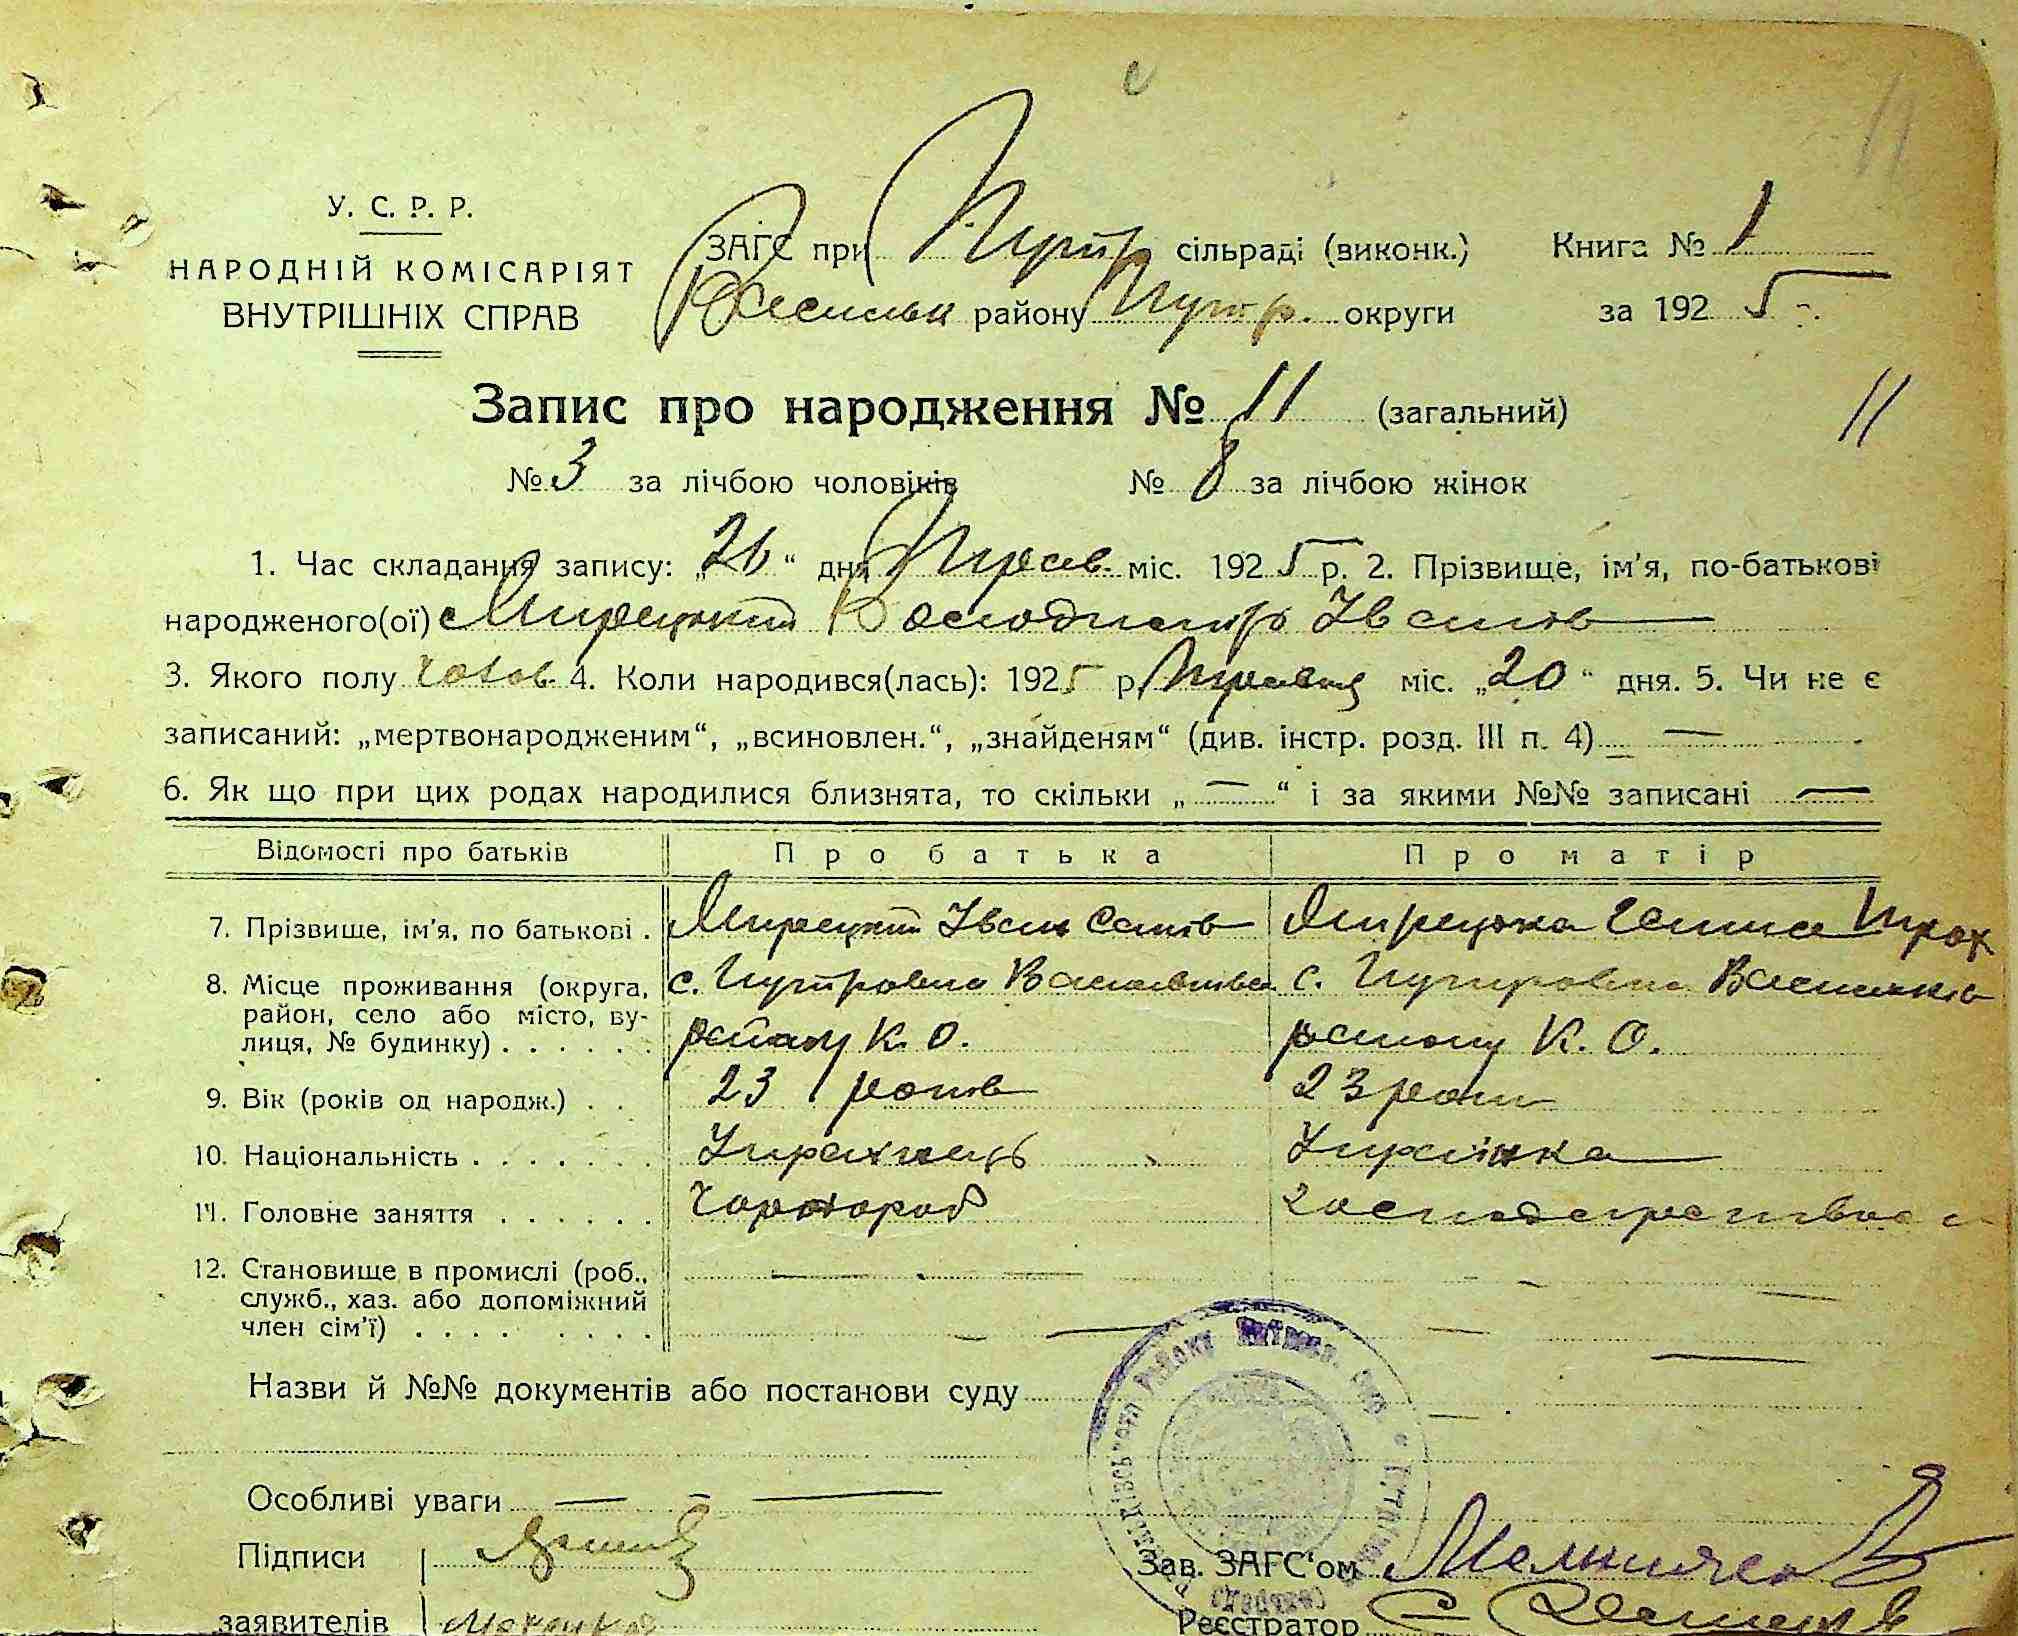 У. С. Р. Р.
НАРОДНІЙ КОМІСАРІЯТ
ВНУТРІШНІХ СПРАВ
ЗАГС при Путр сільраді (виконк.) Книга № 1
району Путр. округи за 1925
Запис про народження № 11 (загальний)
11
№ 3 за лічбою чоловіків № 8 за лічбою жінок
1. Час складання запису: „26“ дня Трав. міс. 1925 р. 2. Прізвище, ім'я, по-батькові
народженого(ої) Мирецкий Володимир Іванів
3. Якого полу чолов. 4. Коли народився(лась): 1925 р. Травня міс. „20“ дня. 5. Чи не є
записаний: „мертвонародженим“, „всиновлен.“, „знайденям“ (див. інстр. розд. III п. 4) —
6. Як що при цих родах народилися близнята, то скільки „—“ і за якими №№ записані —
Відомості про батьків Про батька Про матір
7. Прізвище, ім'я, по батькові . Мирецкий Іван Мирецка Ганна Трох
8. Місце проживання (округа, район, село або місто, вулиця, № будинку) . . . . . .
с. Путровка
району К. О.
с. Путровка
району К. О.
9. Вік (років од народж.) . . 23 років 23 роки
10. Національність . . . . . . . Украінець Украінка
11. Головне заняття . . . . . . Чорнороб
12. Становище в промислі (роб., служб., хаз. або допоміжний член сім'ї) . . . . . . . . .
Назви й №№ документів або постанови суду
Особливі уваги — — —
Підписи
заявителів
Зав. ЗАГС'ом
Реєстратор